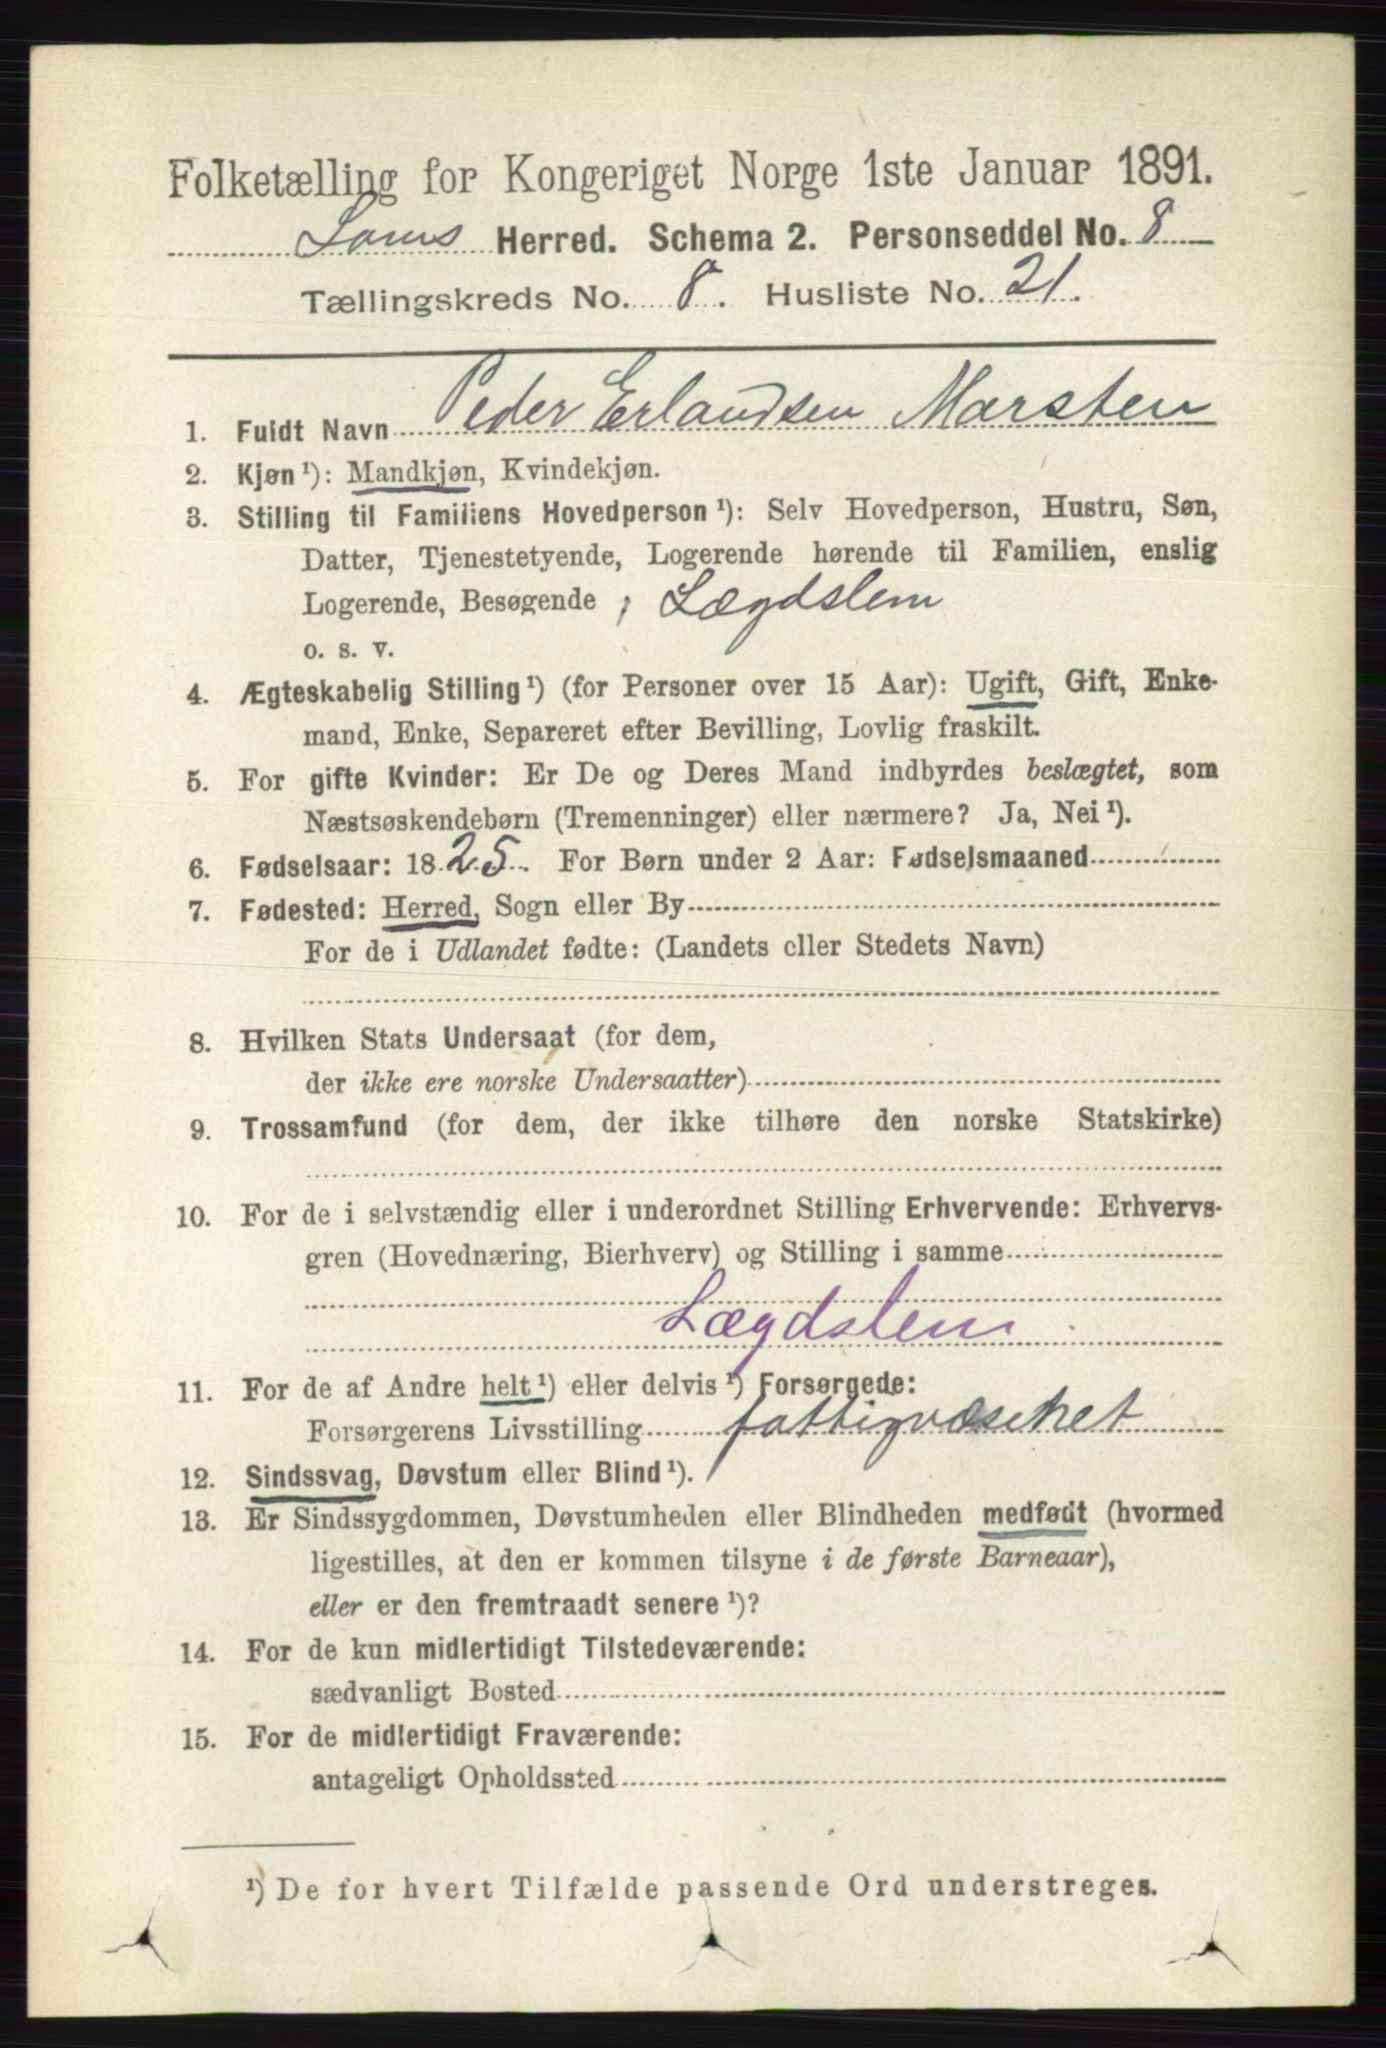 Folketælling for Kongeriget Norge 1ste Januar 1891.
Loms Herred. Schema 2. Personseddel No. 8
Tællingskreds No. 8. Husliste No. 21.
1. Fuldt Navn Peder Erlandsen Marsten
2. Kjøn ¹): Mandkjøn, Kvindekjøn.
3. Stilling til Familiens Hovedperson ¹): Selv Hovedperson, Hustru, Søn,
Datter, Tjenestetyende, Logerende hørende til Familien, enslig
Logerende, Besøgende ; Lægdslem
o. s. v.
4. Ægteskabelig Stilling ¹) (for Personer over 15 Aar): Ugift, Gift, Enke-
mand, Enke, Separeret efter Bevilling, Lovlig fraskilt.
5. For gifte Kvinder: Er De og Deres Mand indbyrdes beslægtet, som
Næstsøskendebørn (Tremenninger) eller nærmere? Ja, Nei ¹).
6. Fødselsaar: 1825. For Børn under 2 Aar: Fødselsmaaned
7. Fødested: Herred, Sogn eller By
For de i Udlandet fødte: (Landets eller Stedets Navn)
8. Hvilken Stats Undersaat (for dem,
der ikke ere norske Undersaatter)
9. Trossamfund (for dem, der ikke tilhøre den norske Statskirke)
10. For de i selvstændig eller i underordnet Stilling Erhvervende: Erhvervs-
gren (Hovednæring, Bierhverv) og Stilling i samme
Lægdslem.
11. For de af Andre helt ¹) eller delvis ¹) Forsørgede:
Forsørgerens Livsstilling fattigvæsenet
12. Sindssvag, Døvstum eller Blind ¹).
13. Er Sindssygdommen, Døvstumheden eller Blindheden medfødt (hvormed
ligestilles, at den er kommen tilsyne i de første Barneaar),
eller er den fremtraadt senere ¹)?
14. For de kun midlertidigt Tilstedeværende:
sædvanligt Bosted
15. For de midlertidigt Fraværende:
antageligt Opholdssted
¹) De for hvert Tilfælde passende Ord understreges.